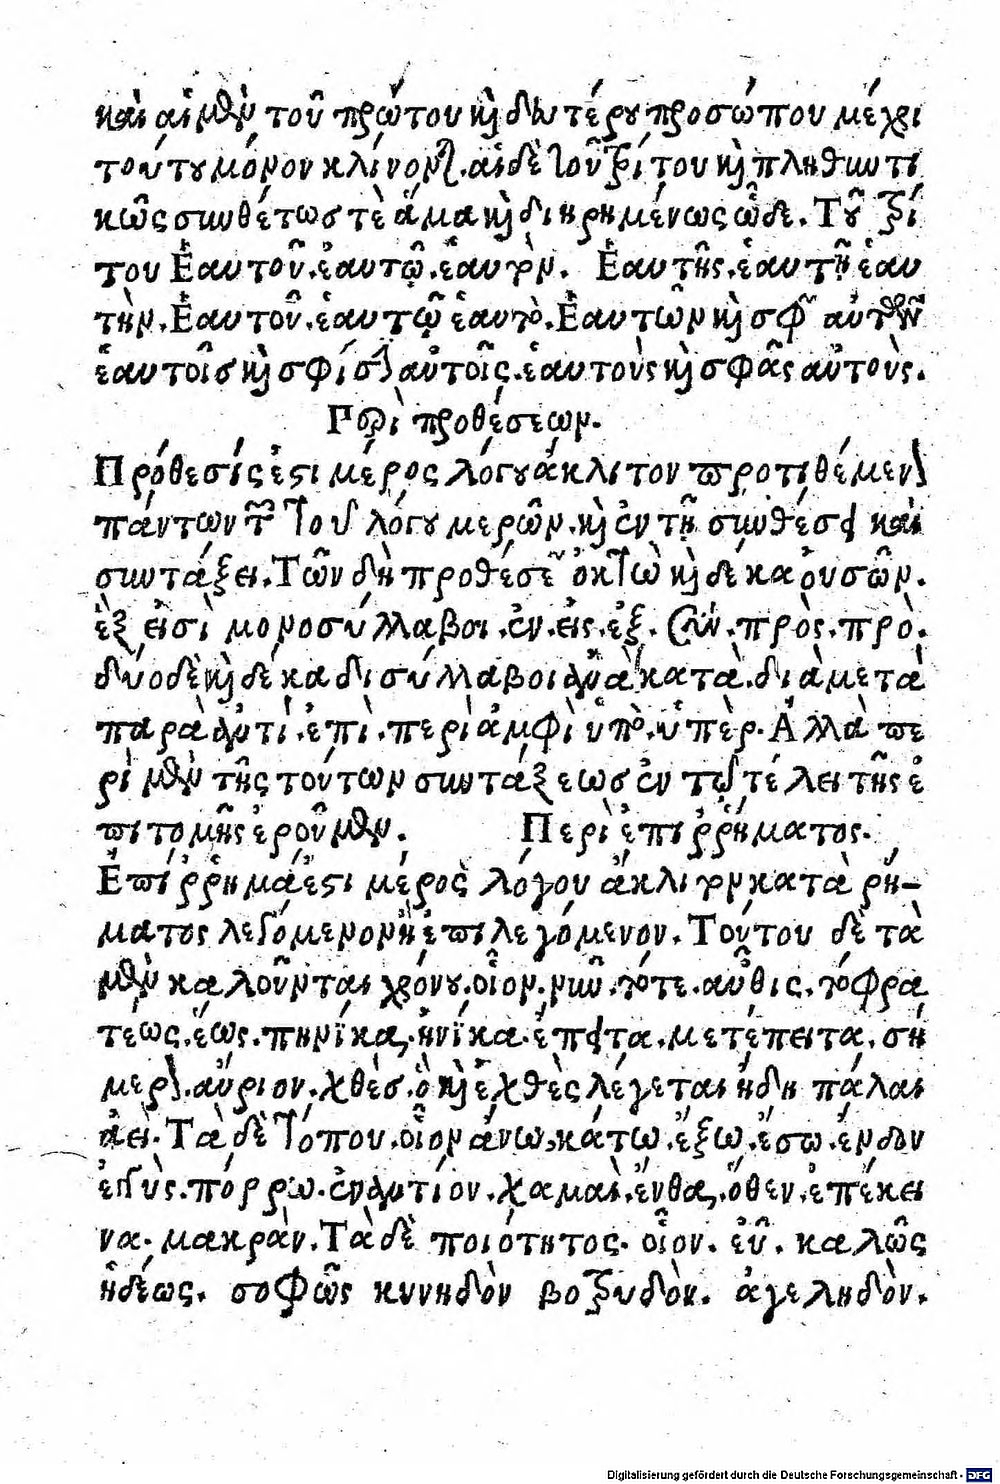 καὶ αἱ μὲν τοῦ πρώτου καὶ δευτέρου προσώπου μέχρι
τούτου μόνον κλίνονται. αἱ δὲ τοῦ τρίτου καὶ πληθυντι
κῶς συνθέτως τὲ ἅμα καὶ διηρημένως ὧδε. Τοῦ τρί
του Ἑαυτοῦ. ἑαυτῷ. ἑαυτόν. Ἑαυτῆς. ἑαυτῇ ἑαυ
τὴν. Ἑαυτοῦ. ἑαυτῷ ἑαυτὸ. Ἑαυτῶν καὶ σφῶν αὐτῶν
ἑαυτοῖς καὶ σφίσιν αὐτοῖς. ἑαυτοὺς καὶ σφᾶς αὐτοὺς.
Περὶ προθέσεων.
Πρόθεσίς ἐστι μέρος λόγου ἄκλιτον προτιθέμενον
πάντων τῶν τοῦ λόγου μερῶν. καὶ ἐν τῇ συνθέσει καὶ
συντάξει. Τῶν δὴ προθέσεων ὀκτὼ καὶ δέκα οὐσῶν.
ἓξ εἰσὶ μονοσύλλαβοι. ἐν. εἰς. ἐξ. σὺν. πρὸς. πρὸ.
δύο δὲ καὶ δέκα δισύλλαβοι ἀνὰ κατὰ. διὰ μετὰ
παρὰ ἀντὶ. ἐπὶ. περὶ ἀμφὶ ὑπὸ. ὑπὲρ. Ἀλλὰ πε
ρὶ μὲν τῆς τούτων συντάξεως ἐν τῷ τέλει τῆς ἐ
πιτομῆς ἐροῦμεν. Περὶ ἐπιῤῥήματος.
Ἐπίῤῥημά ἐστι μέρος λόγου ἄκλιτον κατὰ ῥή-
ματος λεγόμενον ἢ ἐπιλεγόμενον. Τούτου δὲ τὰ
μὲν καλοῦνται χρόνου. οἷον. νῦν. τότε. αὖθις. τόφρα
τέως. ἕως. πηνίκα. ἡνίκα. ἔπειτα. μετέπειτα. σή
μερον. αὔριον. χθὲς. ὃ καὶ ἐχθὲς λέγεται ἤδη πάλαι
ἀεὶ. Τὰ δὲ τόπου. οἷον ἄνω, κάτω. ἔξω. ἔσω. ἔνδον
ἐγγὺς. πόρρω. ἐναντίον. χαμαὶ. ἔνθα. ὅθεν. ἐπέκει
να. μακρὰν. Τὰ δὲ ποιότητος. οἷον. εὖ. καλῶς
ἡδέως. σοφῶς κυνηδὸν βοτρυδὸν. ἀγεληδὸν.
Digitalisierung gefördert durch die Deutsche Forschungsgemeinschaft - DFG